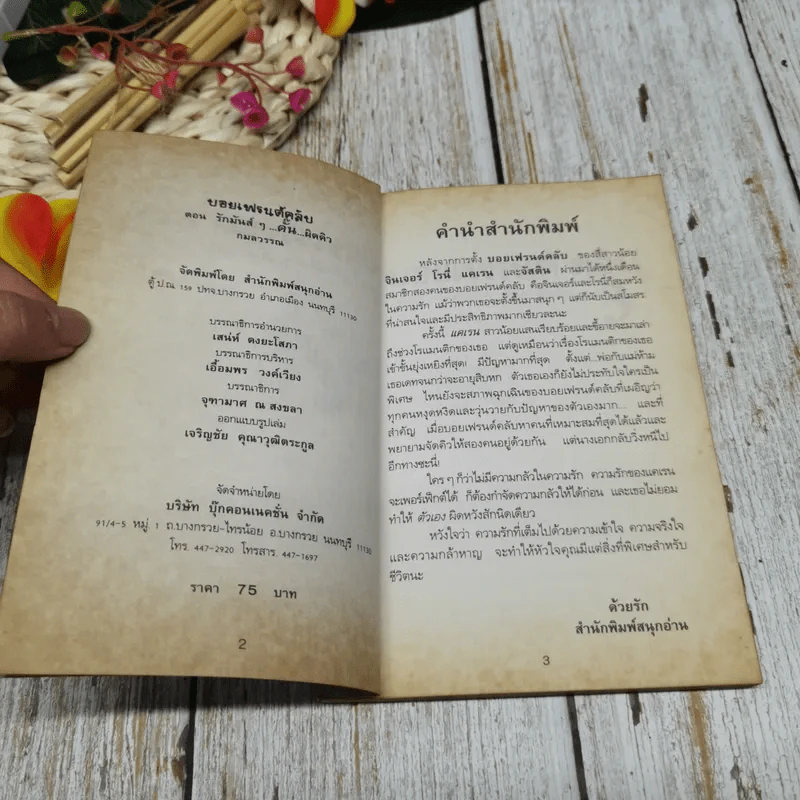 บอยเฟรนด์คลับ
ตอน รักมันส์ ๆ ...คั่น...ผิดคิว
กมลวรรณ
จัดพิมพ์โดย สำนักพิมพ์สนุกอ่าน
ตู้ ป.ณ. 159 ปทจ.บางกรวย อำเภอเมือง นนทบุรี 11130
บรรณาธิการอำนวยการ
เสน่ห์ คงยะโสภา
บรรณาธิการบริหาร
เอื้อมพร วงค์เวียง
บรรณาธิการ
จุฑามาศ ณ สงขลา
ออกแบบรูปเล่ม
เจริญชัย คุณาวุฒิตระกูล
จัดจำหน่ายโดย
บริษัท บุ๊กคอนเนคชั่น จำกัด
91/4-5 หมู่ 1 ถ.บางกรวย-ไทรน้อย อ.บางกรวย นนทบุรี 11130
โทร. 447-2920 โทรสาร. 447-1697
ราคา 75 บาท
2
คำนำสำนักพิมพ์
หลังจากการตั้ง บอยเฟรนด์คลับ ของสี่สาวน้อย
จินเจอร์ โรนี่ แคเรน และจัสติน ผ่านมาได้หนึ่งเดือน
สมาชิกสองคนของบอยเฟรนด์คลับ คือจินเจอร์และโรนี่ก็สมหวัง
ในความรัก แม้ว่าพวกเธอจะตั้งขึ้นมาสนุก ๆ แต่ก็นับเป็นสโมสร
ที่น่าสนใจและมีประสิทธิภาพมากเชียวละนะ
ครั้งนี้ แคเรน สาวน้อยแสนเรียบร้อยและขี้อายจะมาเล่า
ถึงช่วงโรแมนติกของเธอ แต่ดูเหมือนว่าเรื่องโรแมนติกของเธอ
เข้าขั้นยุ่งเหยิงที่สุด! มีปัญหามากที่สุด ตั้งแต่...พ่อกับแม่ห้าม
เธอเดทจนกว่าจะอายุสิบหก ตัวเธอเองก็ยังไม่ประทับใจใครเป็น
พิเศษ ไหนยังจะสภาพฉุกเฉินของบอยเฟรนด์คลับที่เผอิญว่า
ทุกคนหงุดหงิดและวุ่นวายกับปัญหาของตัวเองมาก... และที่
สำคัญ เมื่อบอยเฟรนด์คลับหาคนที่เหมาะสมที่สุดได้แล้วและ
พยายามจัดคิวให้สองคนอยู่ด้วยกัน แต่นางเอกกลับวิ่งหนีไป
อีกทางซะนี่!
ใคร ๆ ก็ว่าไม่มีความกลัวในความรัก ความรักของแคเรน
จะเพอร์เฟ็กต์ได้ ก็ต้องกำจัดความกลัวให้ได้ก่อน และเธอไม่ยอม
ทำให้ ตัวเอง ผิดหวังสักนิดเดียว
หวังใจว่า ความรักที่เต็มไปด้วยความเข้าใจ ความจริงใจ
และความกล้าหาญ จะทำให้หัวใจคุณมีแต่สิ่งที่พิเศษสำหรับ
ชีวิตนะ
ด้วยรัก
สำนักพิมพ์สนุกอ่าน
3